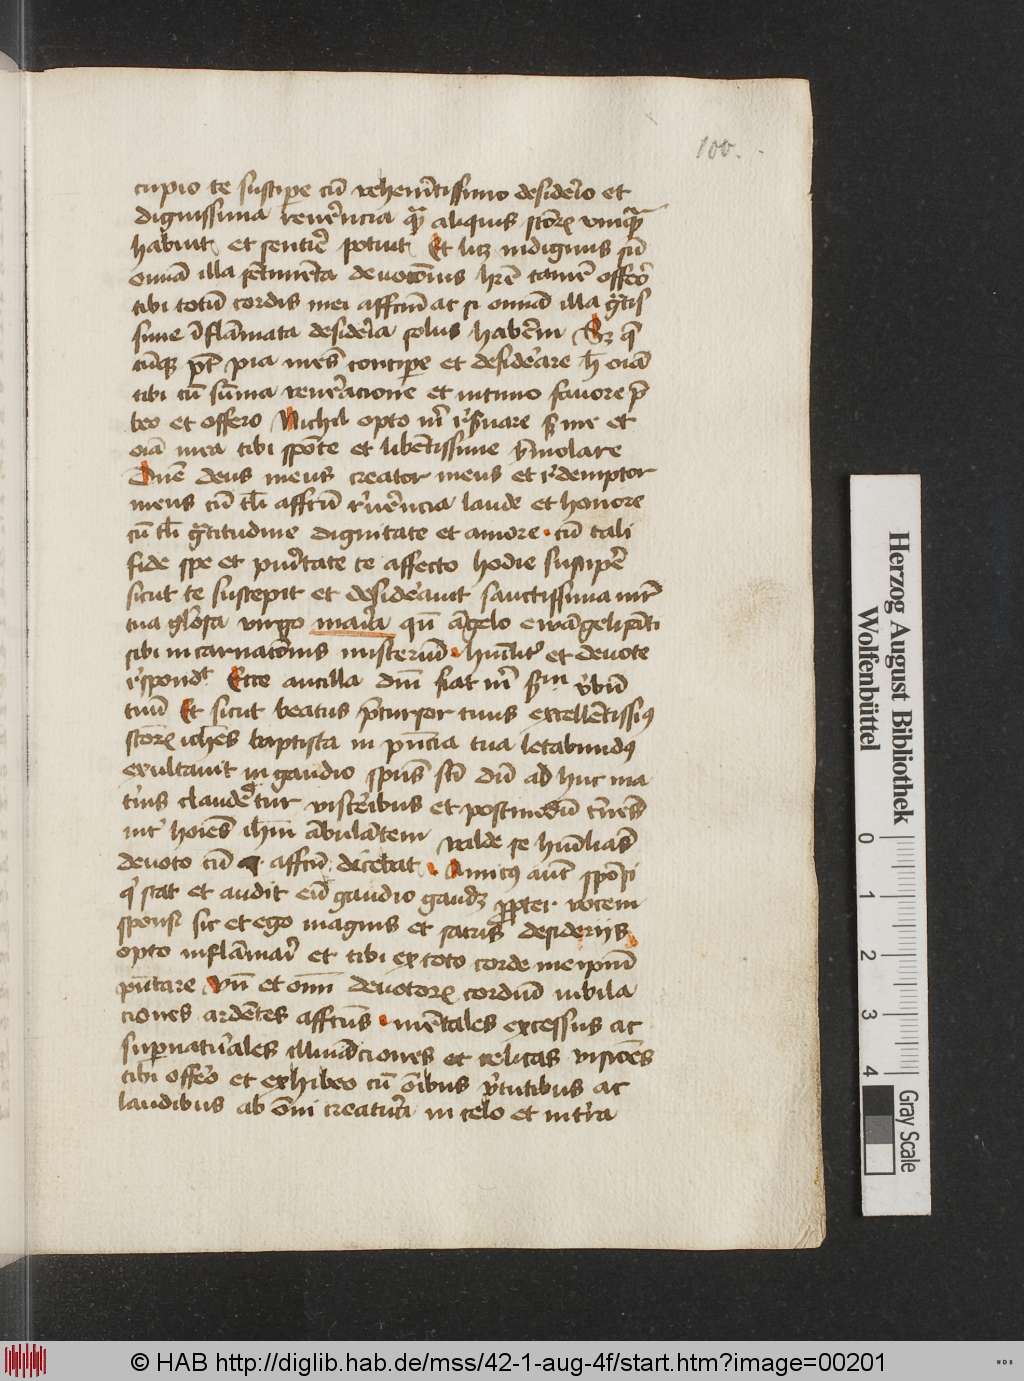 100.
cupio te suscipe cū vehemētissimo desiderio et
dignissima reuerēncia qua aliquis sctorū vnquā
habuit et sentire potuit Et licz indignus sū
omnia illa sētimenta deuotōnis hrē tamē offero
tibi totū cordis mei affctū ac si omnia illa gratis
sime īflāmata desideria solus haberem Sz que
cūqz pt pia mēs concipe et desiderare hec oīa
tibi cū sūma veneracione et intimo fauore pre
beo et offero Nichil opto michi reseruare sz me et
oīa mea tibi spōte et libētissime īmolare
Dne deus meus creator meus et redemptor
meus cū tali affctū reuerēncia laude et honore
cū tali gratitudine dignitate et amore cū tali
fide spe et puritate te affecto hodie suscipē
sicut te suscepit et desiderauit sanctissima mr̄
tua gloriosa virgo maria qn āgelo ewāgelizāti
sibi incarnatōnis misteriū humilit et deuote
respondit Ecce ancilla dni fiat michi scdm vbū
tuū Et sicut beatus precursor tuus excellētissi9
sctorū iohēs baptista in pn̄cia tua letabund9
exultauit in gaudio spūs scti dū ad huc ma
tnis clauderetur visceribus et postmodū cernēs
inter hoīes ihm ābulātem valde se humilias
deuoto cū affctū dicebat Amicus aut spōsi
qui stat et audit eū gaudio gaudz propter vocem
sponsi sic et ego magnis et sacris desiderijs
opto inflāmari et tibi ex toto corde meipm
pn̄tare Vn et omī deuotorū cordiū iubila
ciones ardētes affctus mētales excessus ac
supernaturales illumīaciones et celicas visiōes
tibi offero et exhibeo cū ōibus virtutibus ac
laudibus ab ōni creatura in celo et in terra
Herzog August Bibliothek
Wolfenbüttel
0 1 2 3 4
Gray Scale
© HAB http://diglib.hab.de/mss/42-1-aug-4f/start.htm?image=00201